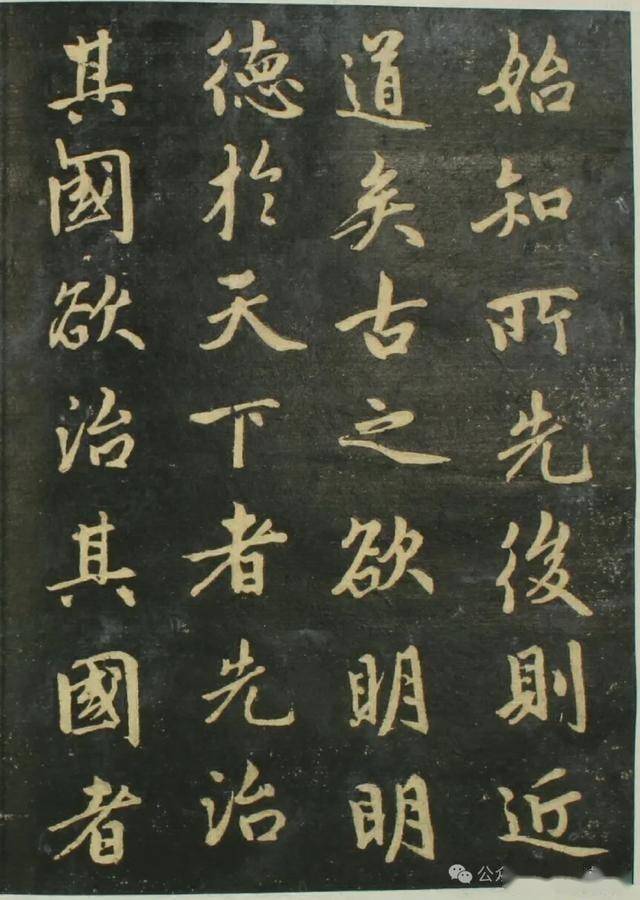 始知所先後則近
道矣古之欲明明
德於天下者先治
其國欲治其國者
公众